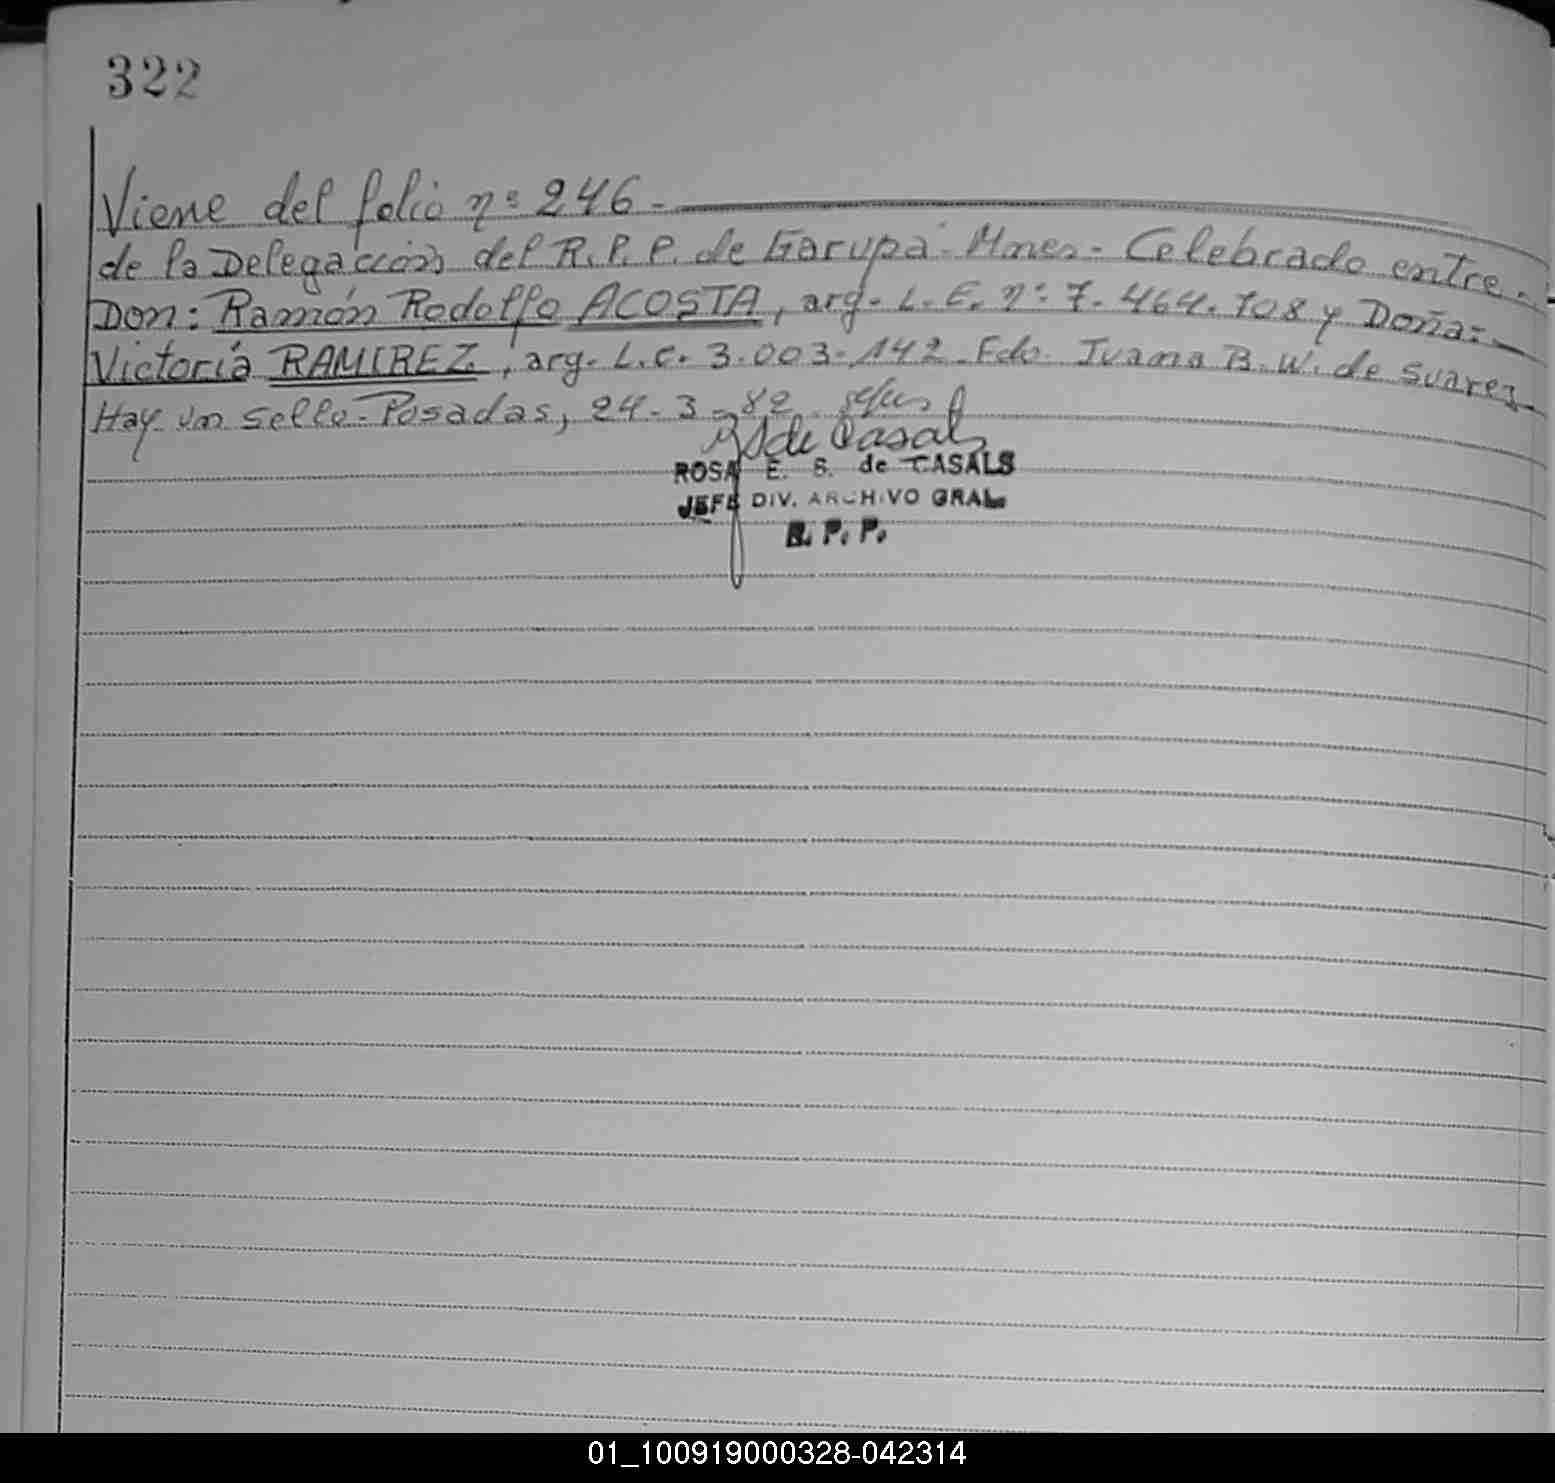 322
Viene del folio nº 246.-
de la Delegación del R.P.P. de Garupá - Mnes - Celebrado entre.-
Don: Ramón Rodolfo ACOSTA, arg. L.E. nº 7.464.708 y Doña:-
Victoria RAMIREZ, arg. L.C. 3.003.142. Fdo. Juana B. W. de Suarez.
Hay un sello. Posadas, 24-3-82.
de Casals
ROSA E. S. de CASALS
JEFE DIV. ARCHIVO GRAL
R. P. P.
01_100919000328-042314